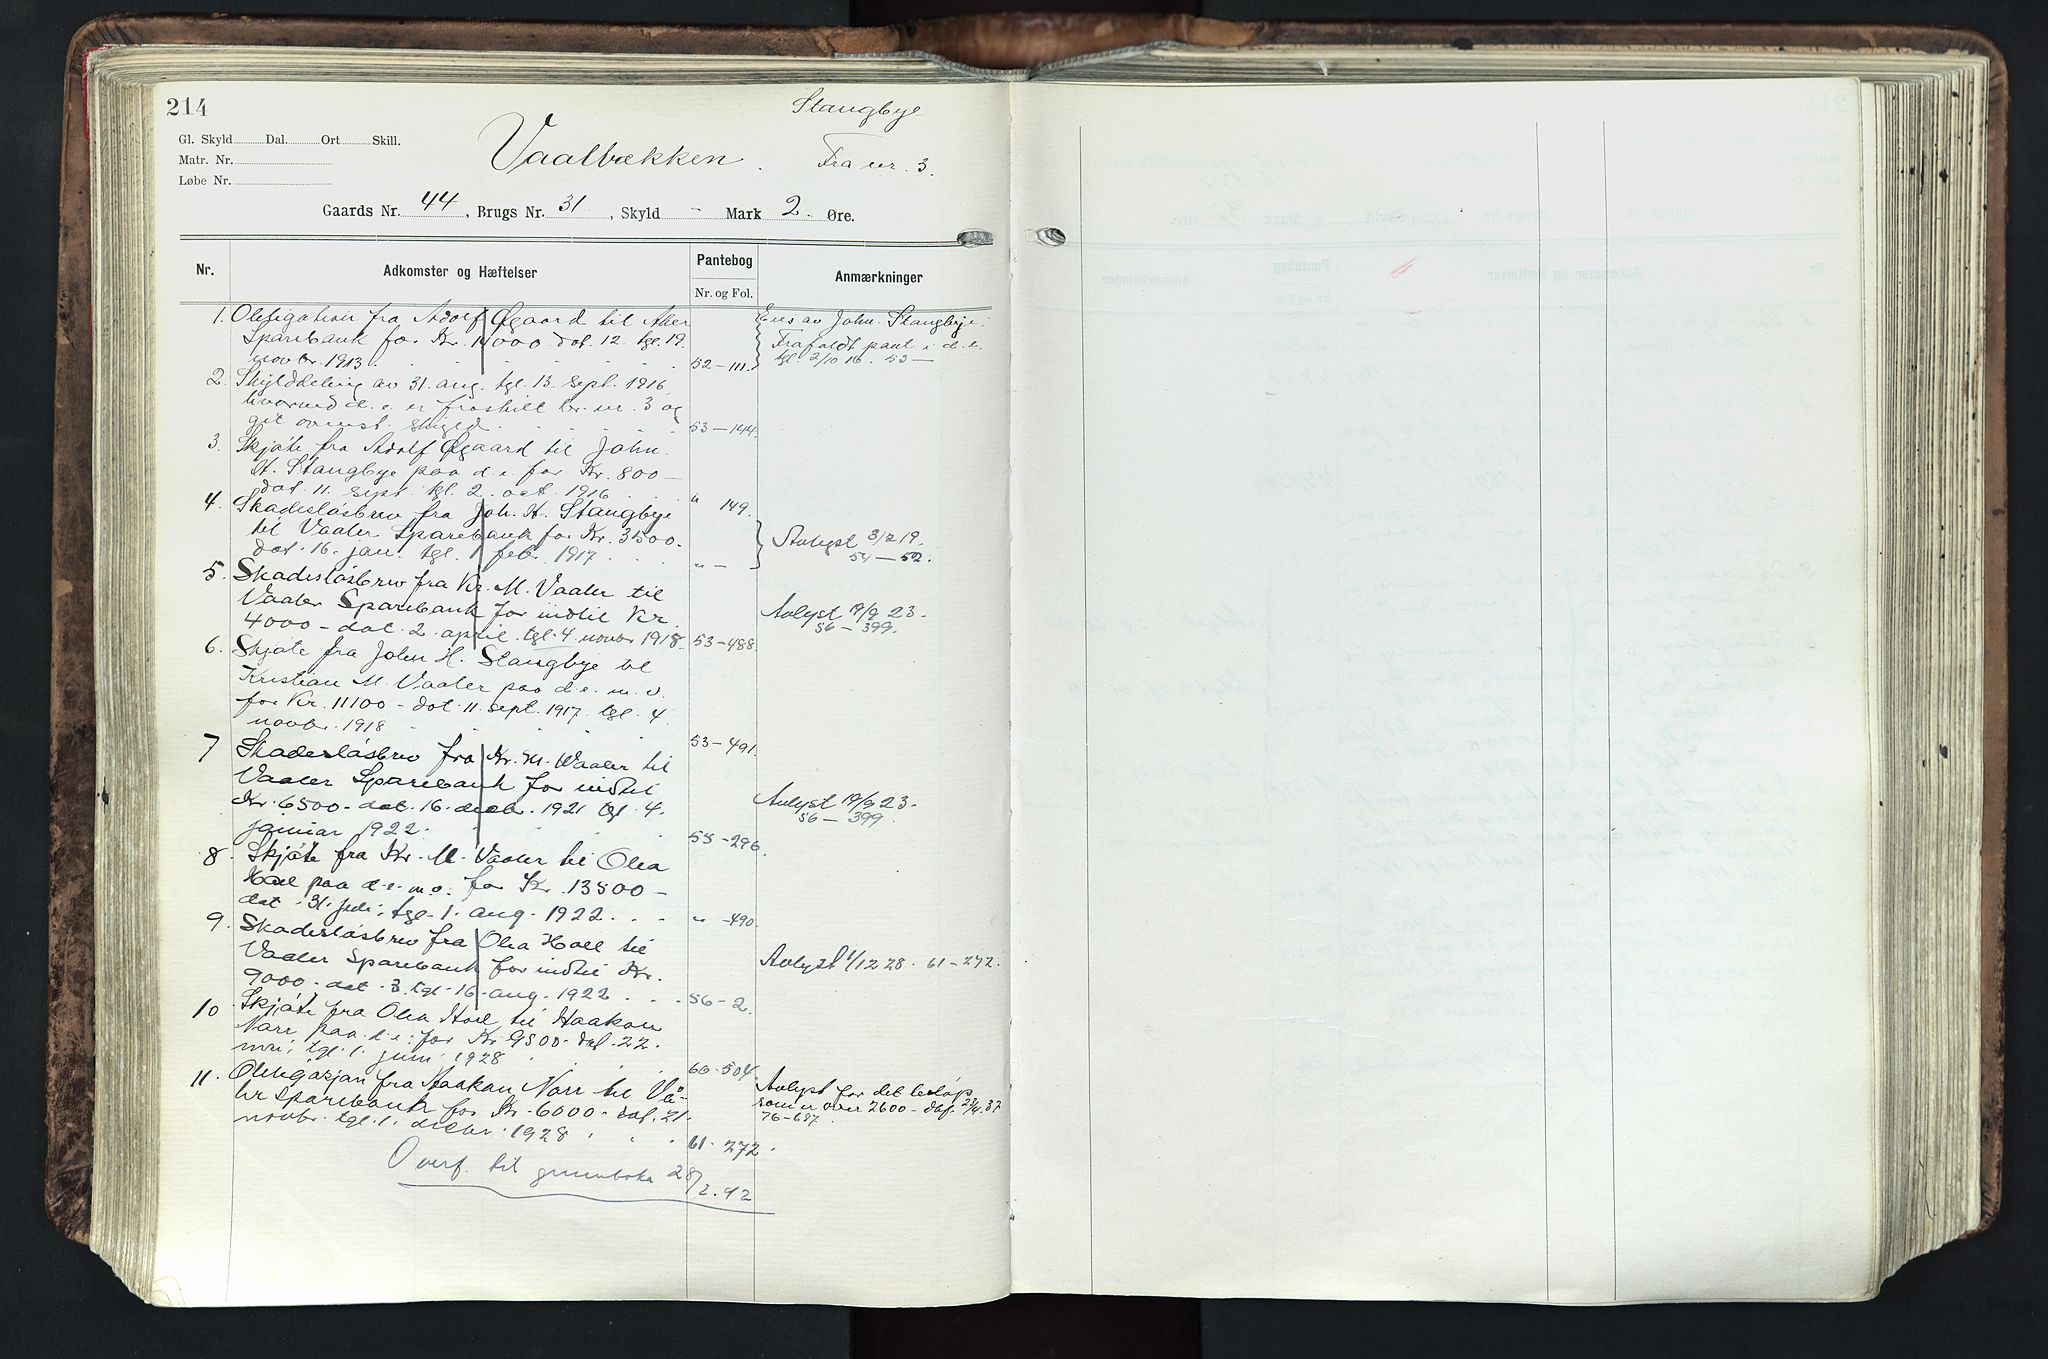 214
Stangbye
Gl. Skyld Dal. Ort Skill.
Matr. Nr.
Løbe Nr.
Vaalbækken.
Fra nr. 3.
Gaards Nr. 44, Brugs Nr. 31, Skyld - Mark 2. Øre.
Nr. Adkomster og Hæftelser Pantebog Anmærkninger
Nr. og Fol.
1. Obligation fra Adolf Øgaard til Aker
Sparebank for Kr. 11000 dat. 12. tgl. 19.
novbr. 1913. 52-111.
Eies av John. Stangbye.
Frafaldt pant i d. e.
tgl. 2/10 16. 53-
2. Skylddeling av 31. aug. tgl. 13. sept. 1916
hvorved d. e. er fraskilt br. nr. 3 og
git ovenst. skyld. 53-144.
3. Skjøte fra Adolf Øgaard til John.
H. Stangbye paa d. e. for Kr. 800-
dat. 11. sept. tgl. 2. oct. 1916. " 149.
4. Skadesløsbrev fra Joh. H. Stangbye
til Vaaler Sparebank for Kr. 3500.
dat. 16. jan. tgl. 1 feb. 1917. " -
Avlyst 3/2 19.
54-52.
5. Skadesløsbrev fra Kr. M. Vaaler til
Vaaler Sparebank for indtil Kr.
4000- dat. 2. april. tgl. 4. novbr 1918. 53-488.
Avlyst 19/9 23.
56-399.
6. Skjøte fra John H. Stangbye til
Kristian M. Vaaler paa d. e. m. v.
for Kr. 11100- dat. 11. sept. 1917. tgl. 4.
novbr. 1918 53-491.
7 Skadesløsbrev fra Kr. M. Vaaler til
Vaaler Sparebank for indtil
Kr. 6500- dat. 16. decbr. 1921 tgl. 4.
januar 1922. 55-296.
Avlyst 19/9 23.
56-399.
8. Skjøte fra Kr. M. Vaaler til Olea
Hoel paa d. e. m. v. for Kr. 13500-
dat. 31. juli; tgl. 1. aug. 1922. " -490.
9. Skadesløsbrev fra Olea Hoel til
Vaaler Sparebank for indtil Kr.
9000- dat. 3. tgl. 16. aug. 1922. 56-2.
Avlyst 1/12 28. 61-272.
10. Skjøte fra Olea Hoel til Haakon
Narr paa d. e. for Kr. 9500- dat. 22.
mai; tgl. 1. juni 1928 60-504.
11. Obligasjon fra Haakon Narr til Vå-
ler Sparebank for Kr. 6000- dat. 21.
novbr. tgl. 1. decbr. 1928. 61-272.
Avlyst for det beløp
som er over 2600- dat. 23/4. 37
76-687.
Overf. til grunnboka 28/2.92